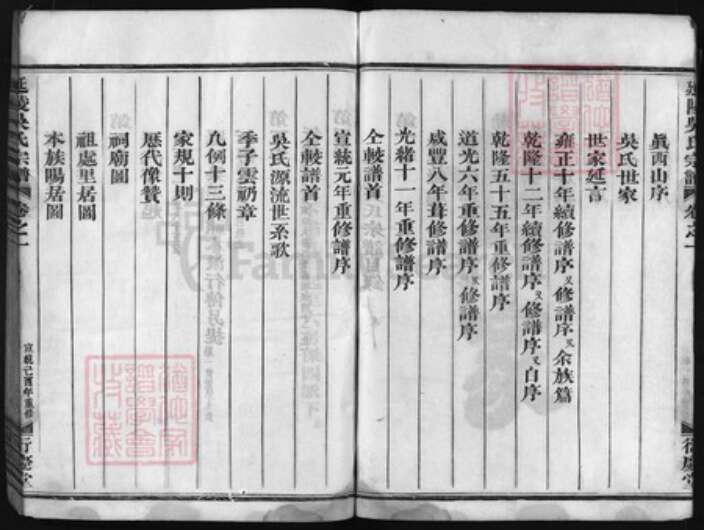 眞西山序
吳氏世家
世家延言
雍正十年續修譜序 又修譜序 又余族篇
乾隆十二年續修譜序 又修譜序 又自序
乾隆五十五年重修譜序
道光六年重修譜序 又修譜序
咸豐八年葺修譜序
光緒十一年重修譜序
仝較譜首
宣統元年重修譜序
仝較譜首
吳氏源流世系歌
季子雲礽章
凡例十三條
家規十則
歷代像贊
祠廟圖
祖處里居圖
本族暘居圖
延陵吳氏宗譜 卷之一
宣統己酉年重修
行慶堂